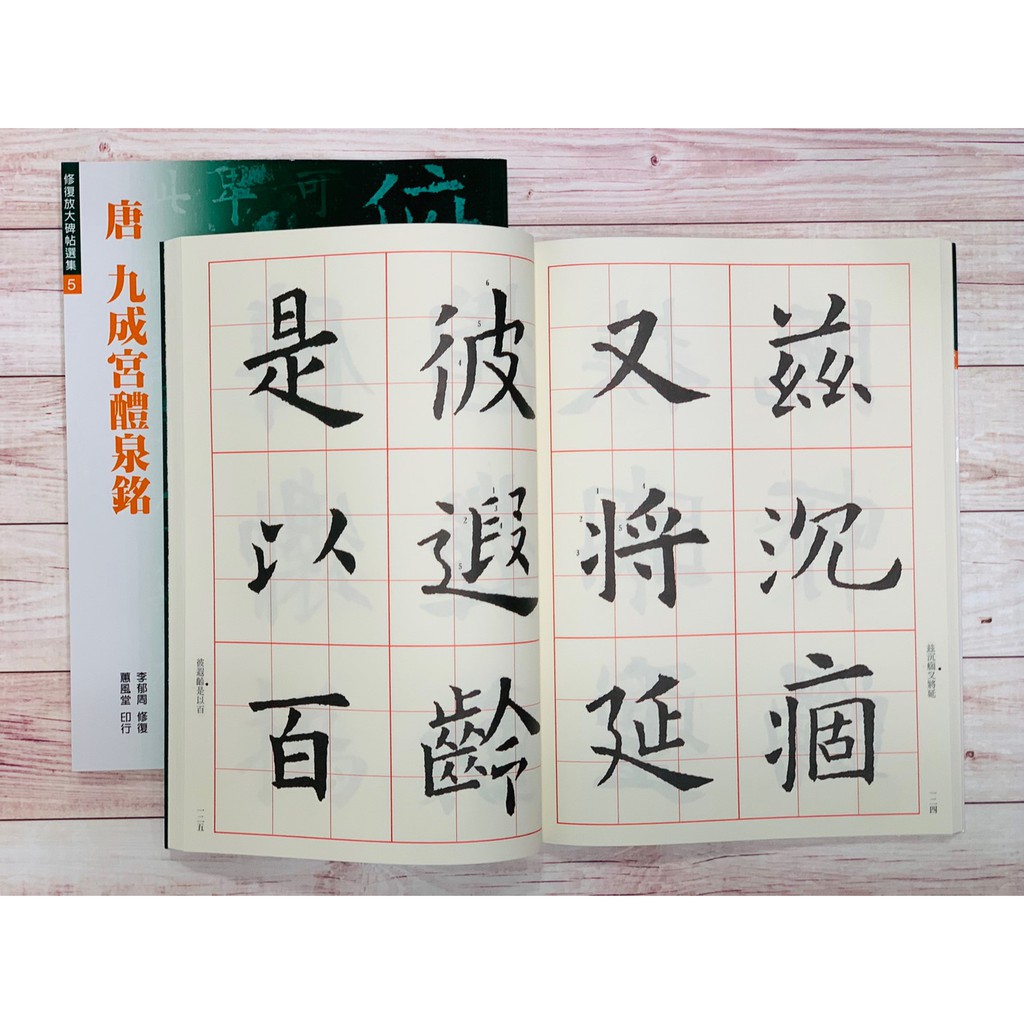 修復放大碑帖選集 5
唐 九成宮醴泉銘
李郁周 修復
蕙風堂 印行
此
卑
可
茲沉痼
又將延
茲沉痼又將延
一二四
彼遐齡
是以百
彼遐齡是以百
一二五